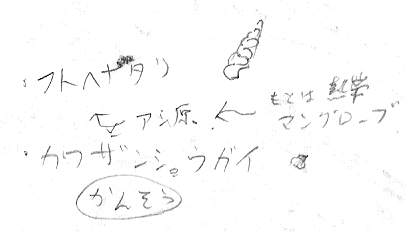 ・フトヘナタリ
もとは 熱帯
アシ原 ← マングローブ
・カワザンショウガイ
かんそう